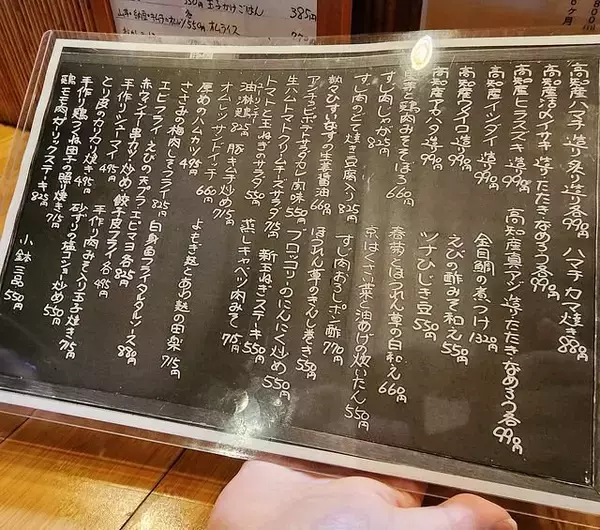 高知産ハマチ 造り・炙り造り各990円 ハマチカマ焼き880円
高知産活〆イサキ 造り・たたき・なめろう各990円
高知産ヒラスズキ 造り990円 高知産真アジ 造り・たたき・なめろう各990円
高知産イシダイ 造り990円 金目鯛の煮つけ1320円
高知産ウメイロ 造り990円 えびの酢みそ和え550円
高知産アカハタ 造り990円 ツナひじき豆550円
鶏肉みそそぼろ660円 春菊とほうれん草の白和え660円
すじ肉しょうが825円 京はくさい菜と油あげの炊いたん550円
すじ肉のどて焼き豆腐入り825円 すじ肉おろしポン酢770円
熱々ひすいなすの生姜醤油660円 ほうれん草のきんし巻き550円
アンチョビポテトサラダタレ風味550円 ブロッコリーのにんにく炒め550円
生ハムトマトクリームチーズサラダ715円 新玉ねぎステーキ550円
トマトと玉ねぎのサラダ550円 蒸しキャベツ肉みそ715円
油淋鶏825円 豚キムチ炒め715円
オムレツサンドイッチ660円
厚めのハムカツ495円 よもぎ麩とあわ麩の田楽715円
ささみの梅肉しそフライ825円
エビフライ えびの天ぷら エビマヨ各825円 白身魚フライタルタルソース880円
赤ウインナー 串カツ 炒め 餃子皮フライ各495円
手作りシューマイ495円 手作り肉みそ入り玉子焼き715円
とり皮のカリカリ焼き495円 砂ずりの塩コショー炒め550円
手作り鶏つくね団子の照り焼き715円
鶏モモ肉ガーリックステーキ825円 小鉢三品550円
玉子かけごはん 385円
550円 オムライス